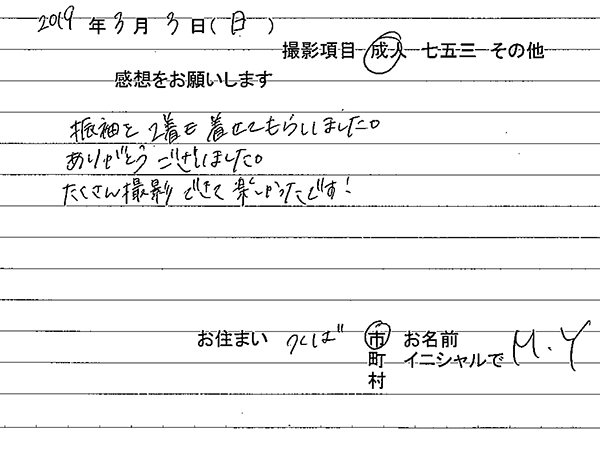 2019年3月3日(日)
撮影項目 成人 七五三 その他
感想をお願いします
振袖を2着も着せてもらいました。
ありがとうございました。
たくさん撮影できて楽しかったです!
お住まい つくば 市 お名前
町 イニシャルで M.Y
村